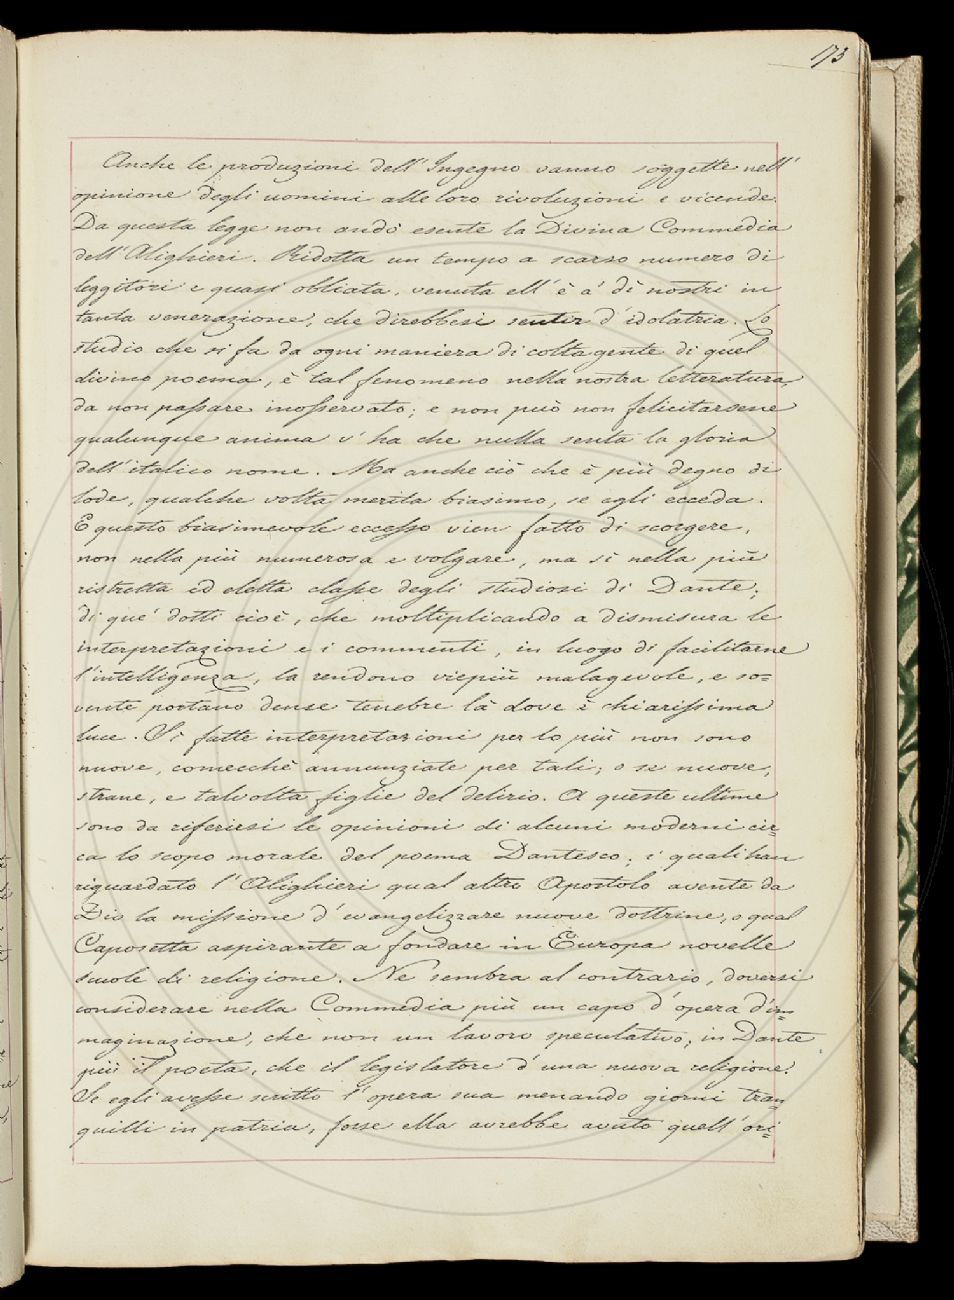 173
Anche le produzioni dell' Ingegno vanno soggette nell'
opinione degli uomini alle loro rivoluzioni e vicende.
Da questa legge non andò esente la Divina Commedia
dell' Alighieri. Ridotta un tempo a scarso numero di
leggitori e quasi obliata, venuta ell' è a' dì nostri in
tanta venerazione, che direbbesi sentir d' idolatria. Lo
studio che si fa da ogni maniera di colta gente di quel
divino poema, è tal fenomeno nella nostra letteratura,
da non passare inosservato; e non può non felicitarsene
qualunque anima v' ha che nulla senta la gloria
dell' italico nome. Ma anche ciò che è più degno di
lode, qualche volta merita biasimo, se egli ecceda.
E questo biasimevole eccesso vien fatto di scorgere,
non nella più numerosa e volgare, ma sì nella più
ristretta ed eletta classe degli studiosi di Dante;
di que' dotti cioè, che moltiplicando a dismisura le
interpretazioni e i commenti, in luogo di facilitarne
l' intelligenza, la rendono viepiù malagevole, e so=
vente portano dense tenebre là dove è chiarissima
luce. Sì fatte interpretazioni per lo più non sono
nuove, comecchè annunziate per tali; o se nuove,
strane, e talvolta figlie del delirio. A queste ultime
sono da riferirsi le opinioni di alcuni moderni cir=
ca lo scopo morale del poema Dantesco; i quali han
riguardato l' Alighieri qual altro Apostolo avente da
Dio la missione d' evangelizzare nuove dottrine, o qual
Caposetta aspirante a fondare in Europa novelle
scuole di religione. Ne sembra al contrario, doversi
considerare nella Commedia più un capo d' opera d' im=
maginazione, che non un lavoro speculativo; in Dante
più il poeta, che il legislatore d' una nuova religione.
Se egli avesse scritto l' opera sua menando giorni tran=
quilli in patria, forse ella avrebbe avuto quell' ori=